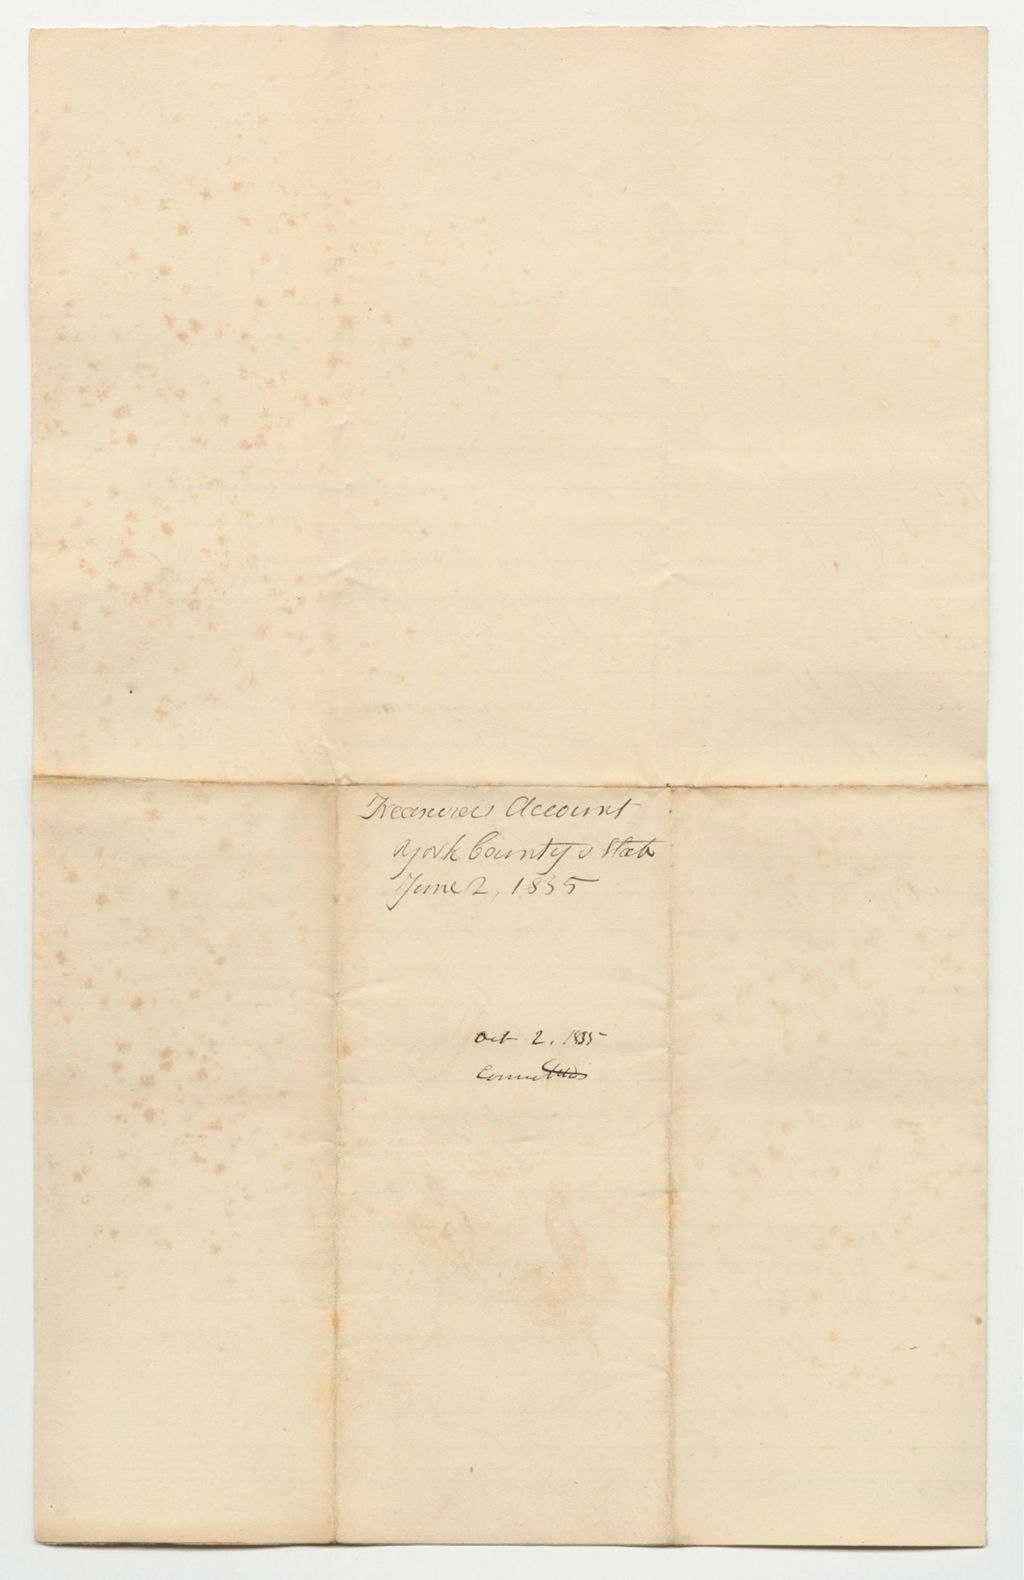 Treasurers Account
York County v State
June 2, 1835
Oct 2. 1835